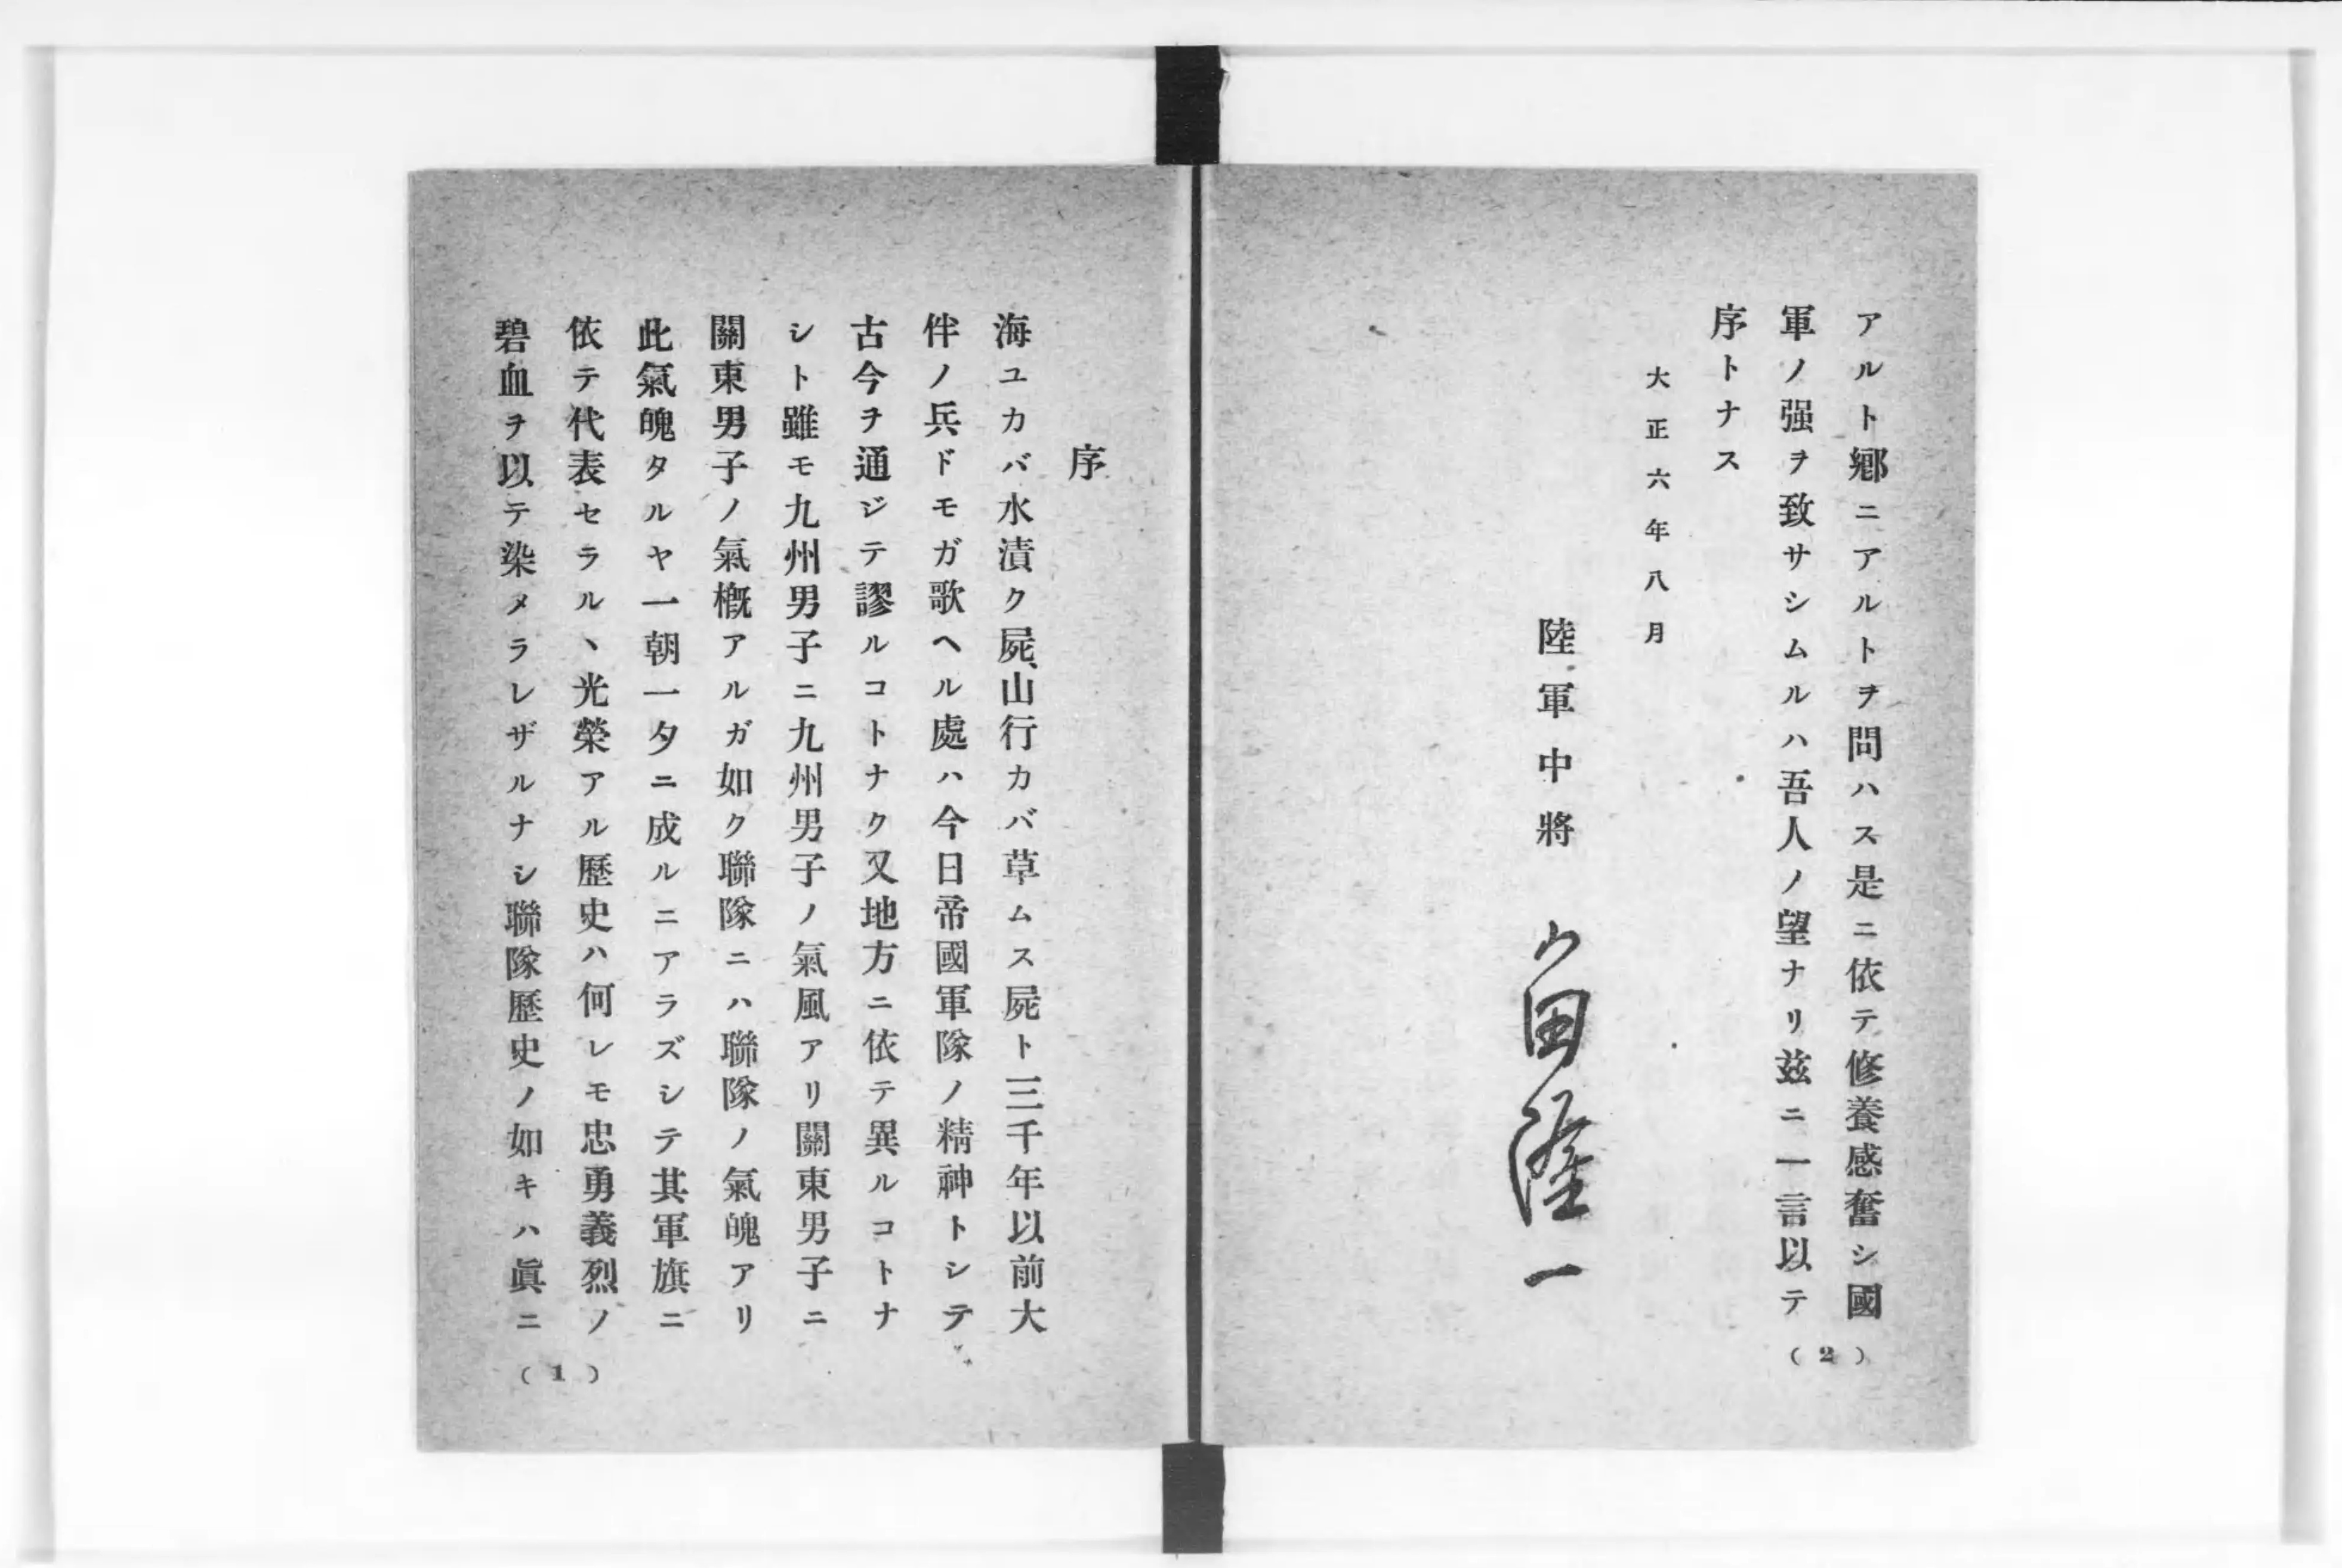 アルト鄕ニアルトヲ問ハス是ニ依テ修養感奮シ國
軍ノ强ヲ致サシムルハ吾人ノ望ナリ玆ニ一言以テ
序トナス
大正六年八月
陸軍中將 田隆一
(2)
序
海ユカバ水漬ク屍、山行カバ草ムス屍ト三千年以前大
伴ノ兵ドモガ歌ヘル處ハ今日帝國軍隊ノ精神トシテ
古今ヲ通ジテ謬ルコトナク又地方ニ依テ異ルコトナ
シト雖モ九州男子ニ九州男子ノ氣風アリ關東男子ニ
關東男子ノ氣槪アルガ如ク聯隊ニハ聯隊ノ氣魄アリ
此氣魄タルヤ一朝一夕ニ成ルニアラズシテ其軍旗ニ
依テ代表セラルヽ光榮アル歷史ハ何レモ忠勇義烈ノ
碧血ヲ以テ染メラレザルナシ聯隊歷史ノ如キハ眞ニ
(1)